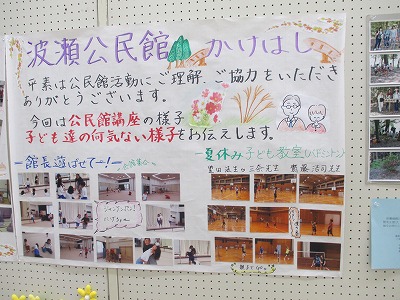 波瀬公民館 かけはし
平素は公民館活動にご理解、ご協力をいただき
ありがとうございます。
今回は公民館講座の様子
子ども達の何気ない様子をお伝えします。
ー館長遊ばせてー!ー
ー夏休み子ども教室(バドミントン)